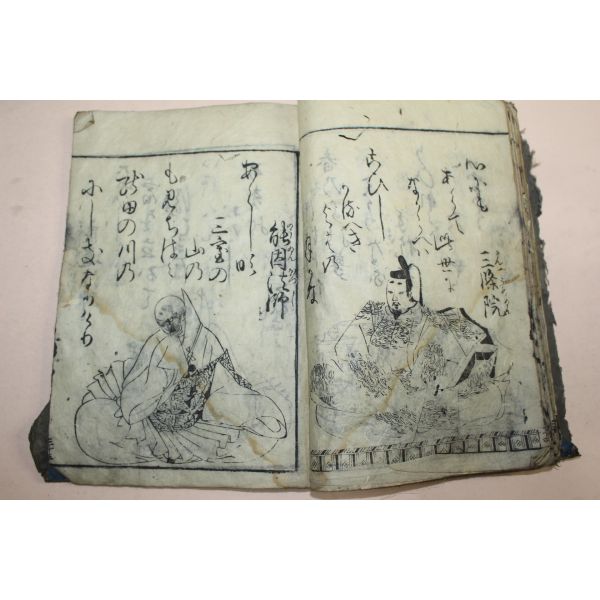 三條院
心にも
あらて此世に
なからへは
こひし
かるへき
よはの
月かな
能因法師
あらし吹
三室の
山の
もみちはは
龍田の川の
にしきなりけり